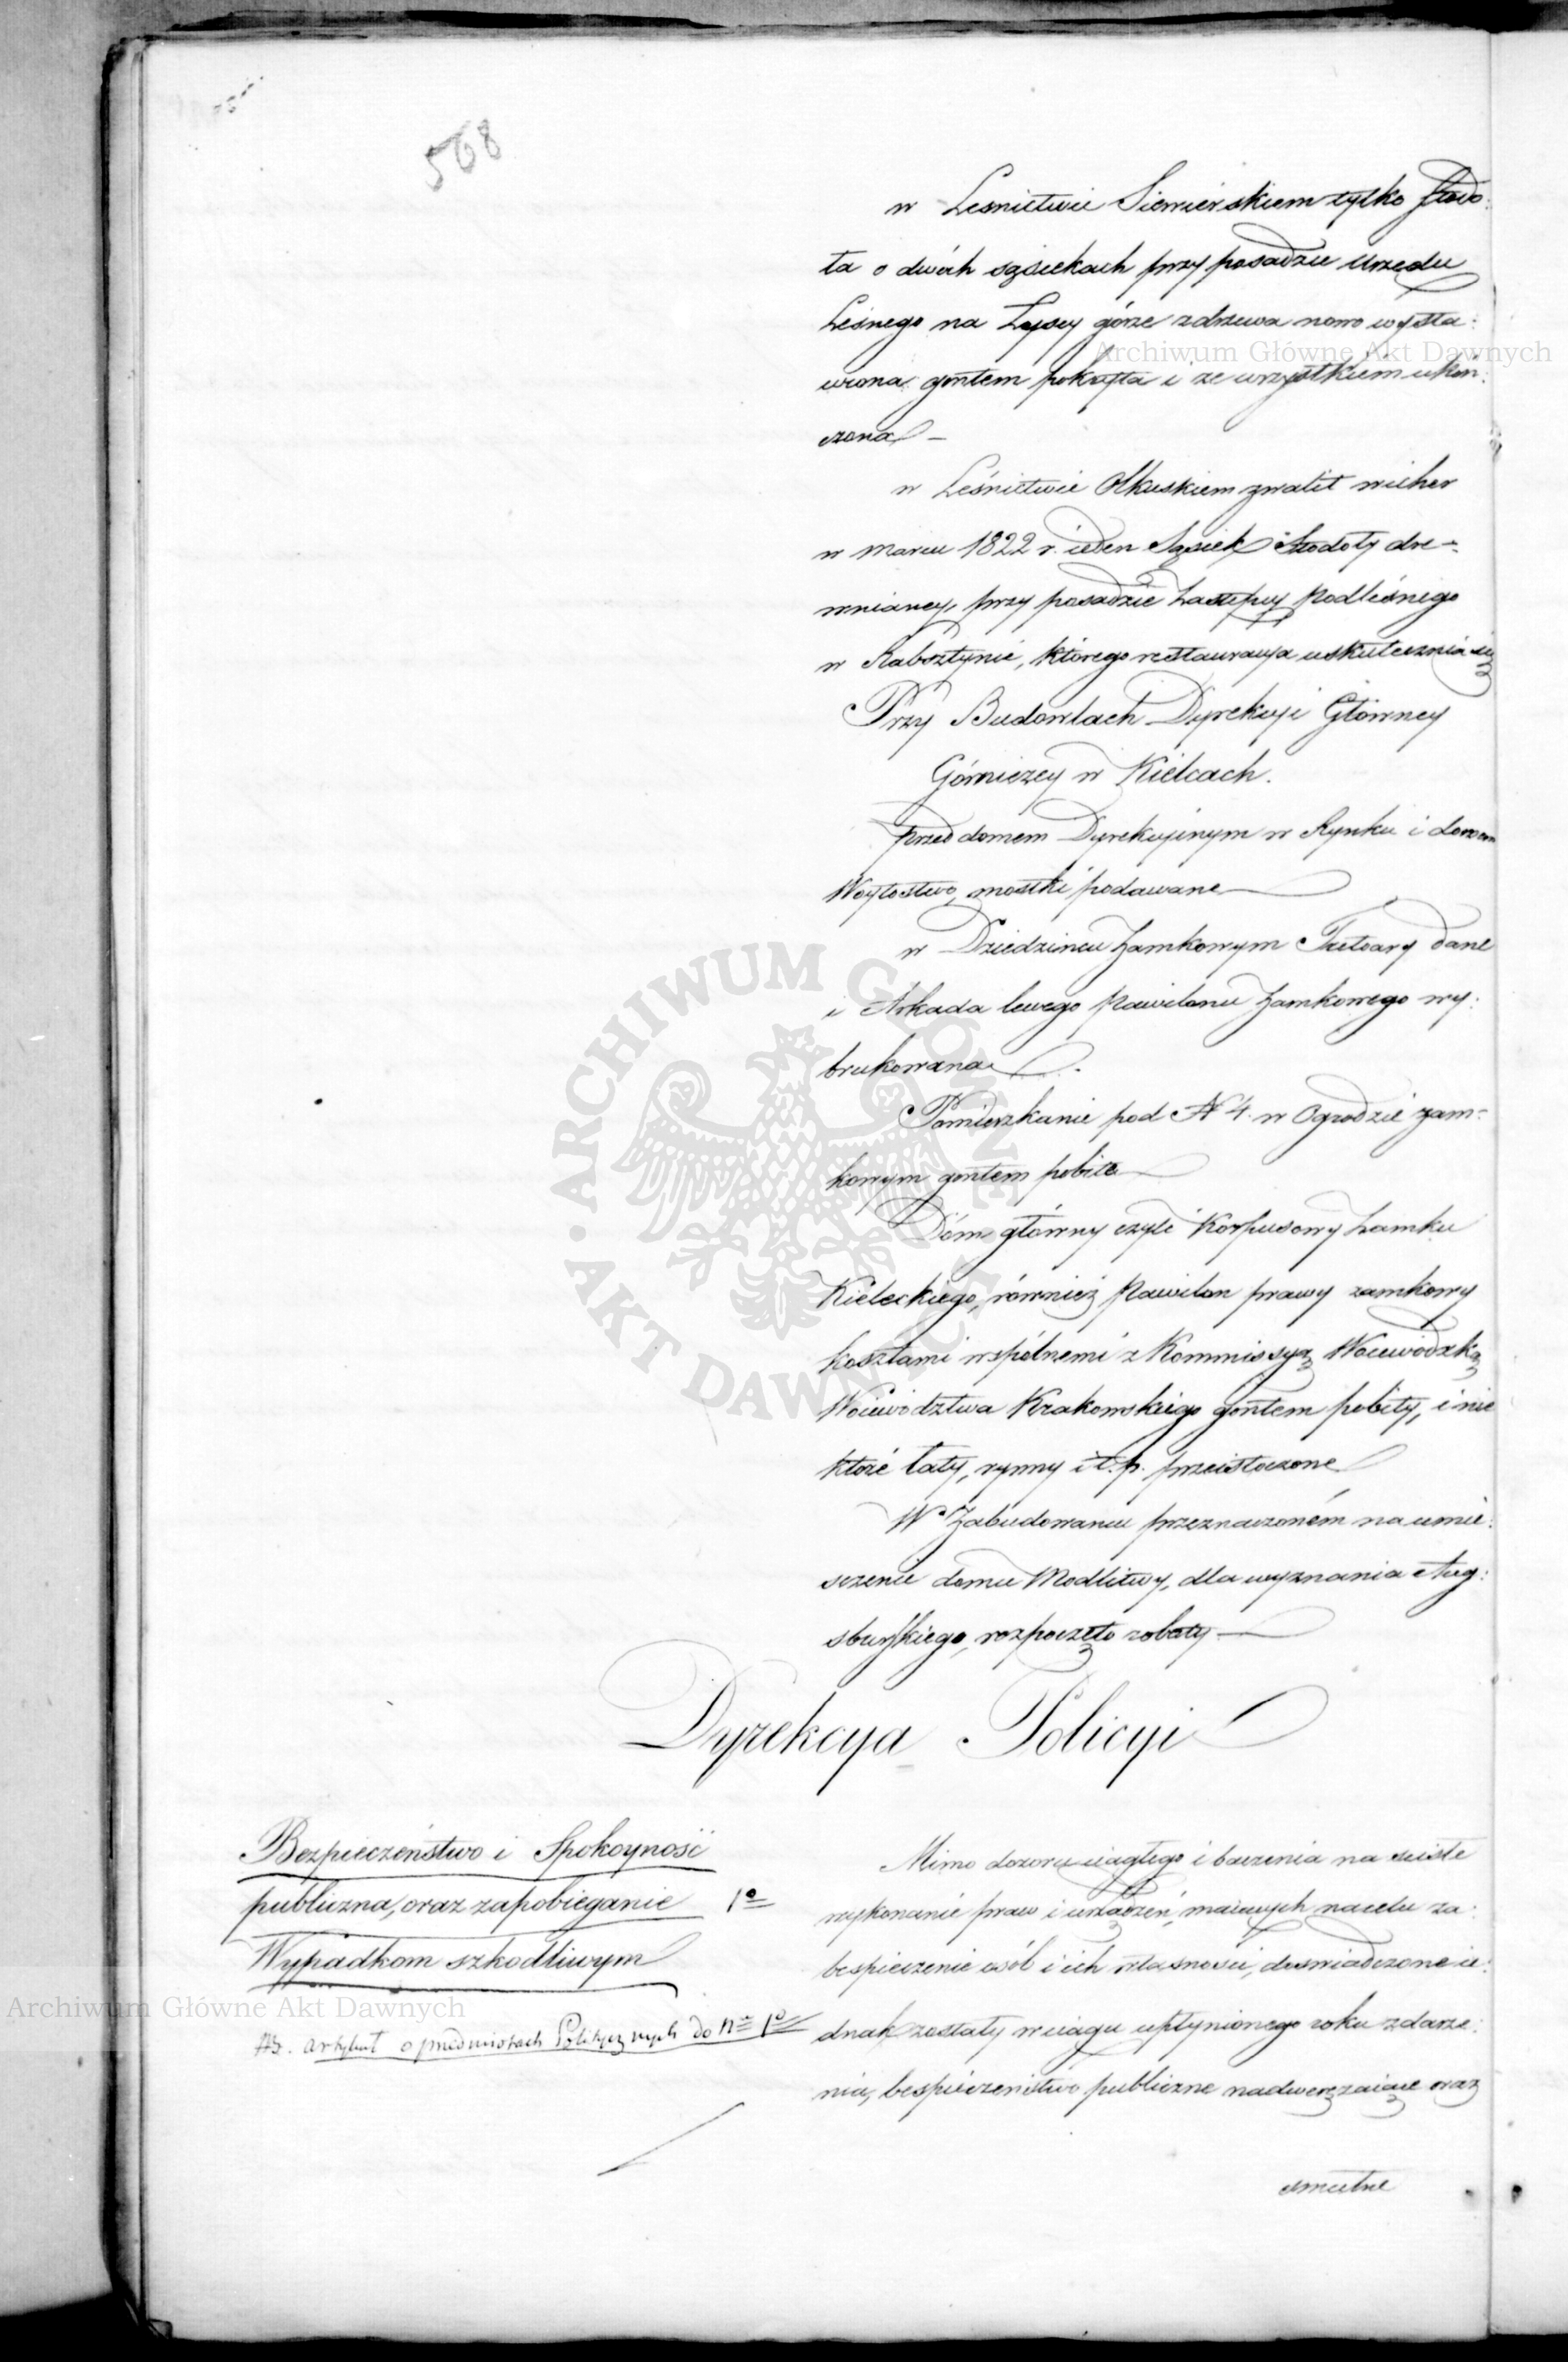 568
w Leśnictwie Siewierskiem tylko Stodo:
ła o dwóch sąsiekach przy posadzie Urzędu
Leśnego na Łysey górze z drzewa nowo wysta:
wiona gontem pokryta i ze wszystkiem ukoń:
czona –
w Leśnictwie Olkuskiem zwalił wicher
w marcu 1822 r. ieden Sąsiek Stodoły dre-
wnianey, przy posadzie Zastępcy Podleśnego
w Rabsztynie, którego restauracya uskutecznia się
Przy Budowlach Dyrekcyi Główney
Górniczey w Kielcach.
przed domem Dyrekcyinym w Rynku i
Woytostwo, mostki podawane
w Dziedzińcu Zamkowym Tretoary dane
i Arkada lewego Pawilonu Zamkowego wy:
brukowana.
Pomieszkanie pod N 4. w Ogrodzie zam-
kowym gontem pobite
Dóm główny czyli Korpusowy Zamku
Kieleckiego, również Pawilon prawy zamkowy
kosztami wspólnemi z Kommissyą Woiewódzką
Woiewództwa Krakowskiego gontem pobity, i nie
które łaty, rynny i t. p. przeistoczone
W Zabudowaniu przeznaczoném na umie:
sczenie domu Modlitwy, dla wyznania Aug:
sburskiego, rozpoczęto roboty
Dyrekcya Policyi
Bezpieczeństwo i Spokoyność
publiczna, oraz zapobieganie 1º
Wypadkom szkodliwym
Ab. artykuł o przedmiotach Politycznych do Nº 1º
Mimo dozoru ciągłego i baczenia na ścisłe
wykonanie praw i urządzeń, maiących na celu za:
bespieczenie osób i ich własności, doświadczone ie:
dnak zostały w ciągu upłynionego roku zdarze:
nia, bespieczeństwo publiczne nadwerężaiące oraz
smutne
Archiwum Główne Akt Dawnych
ARCHIWUM GŁÓWNE AKT DAWNYCH
Archiwum Główne Akt Dawnych